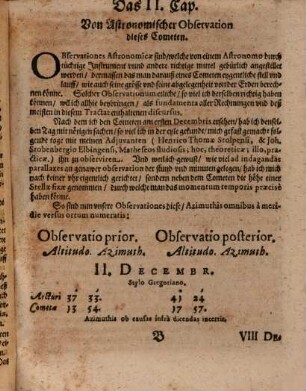 Das II. Cap.
Von Astronomischer Observation
dieses Cometen.
OBservationes Astronomicæ sind welche von einem Astronomo durch
richtige Instrument und andere richtige mittel gebürlich angestellet
werden / dermassen das man darauß eines Cometen eygentliche stell und
lauff / wie auch seine grösse und seine abgelegenheit von der Erden berechnen
könne. Solcher Observationum etliche / so viel ich derselben richtig haben
können / will ich allhie beybringen / als fundamenta aller Rechnungen und deß
meisten in diesem Tractat enthaltenen discursus.
Nach dem ich den Cometen am ersten Decembris ersehen / hab ich denselben
Tag mit nötigen sachen / so viel ich in der eyle gekunde / mich gefast gemacht folgende
tage mit meinen Adjuvanten (Henrico Thoma Stolpensi, & Joh.
Seobenbergio Elbingensi, Matheseos studiosis, hoc, theoreticæ; illo, practicæ,)
ihn zu observiren. Und weil ich gewust / wie viel ad indagandas
parallaxes an genawer observation der stund und minuten gelegen / hab ich mich
nach dato einer uhr eigentlich gerichtet / sondern neben dem Cometen die höhe einer
Stella fixæ genommen / durch welche man das momentum temporis præcisè
haben könne.
So sind nun unsere Observationes diese / Azimuthis omnibus à meridie
versus ortum numeratis:
Observatio prior. Observatio posterior.
Altitudo. Azimuth. Altitudo. Azimuth.
11. DECEMBR.
Stylo Gregoriano.
Arcturi 37 33. 41 24
Cometa 13 54. 17 57.
Azimuthis ob causas infrà dicendas incertis.
B VIII De-